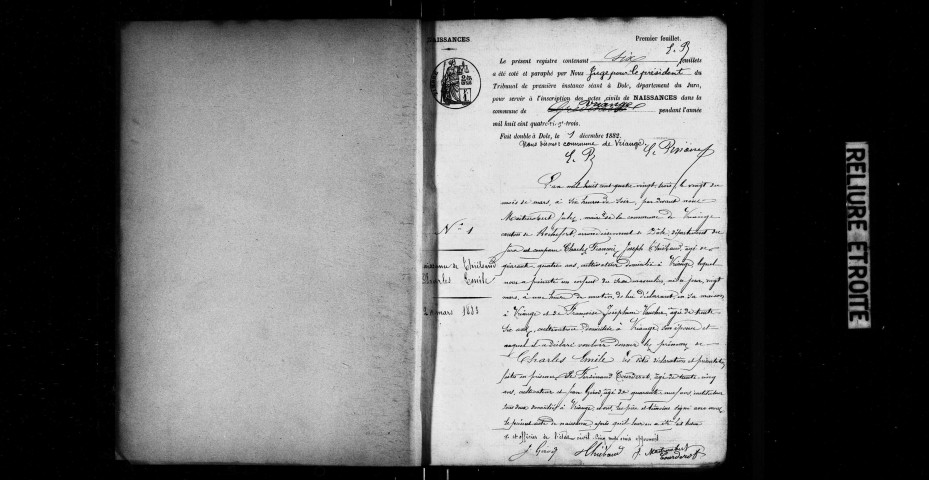 NAISSANCES.
Premier feuillet.
Le présent registre contenant Six feuillets
a été coté et paraphé par Nous Juge pour le président du
Tribunal de première instance séant à Dole, département du Jura,
pour servir à l'inscription des actes civils de NAISSANCES dans la
commune de Vriange pendant l'année
mil huit cent quatre-vingt-trois.
Fait double à Dole, le 1 décembre 1882.
commune de Vriange
L'an mil huit cent quatre vingt trois, le vingt du
mois de mars, à six heures du soir, par devant nous
maire de la commune de Vriange
canton de Rochefort, arrondissement de Dole, département du
Jura est comparu Charles François Joseph Thiébaud, âgé de
quarante quatre ans, cultivateur domicilié à Vriange, lequel
nous a présenté un enfant du sexe masculin, né ce jour, vingt
mars, à une heure du matin, de lui déclarant, en sa maison
à Vriange et de Françoise Joséphine âgée de trente
six ans, cultivatrice domiciliée à Vriange, son épouse et
auquel il a déclaré vouloir donner les prénoms de
Charles Emile les dites déclaration et présentation
faites en présence de Ferdinand Tourderot, âgé de trente cinq
ans, cultivateur et Jean Girod, âgé de quarante ans, instituteur
tous deux domiciliés à Vriange et ont, les père et témoins signé avec nous
le présent acte de naissance, après qu'il leur en a été fait lecture
et officier de l'état civil
J. Girod Thiébaud Tourderot
N° 1
naissance de Thiébaud
Charles Emile
20 mars 1883
RELIURE ETROITE